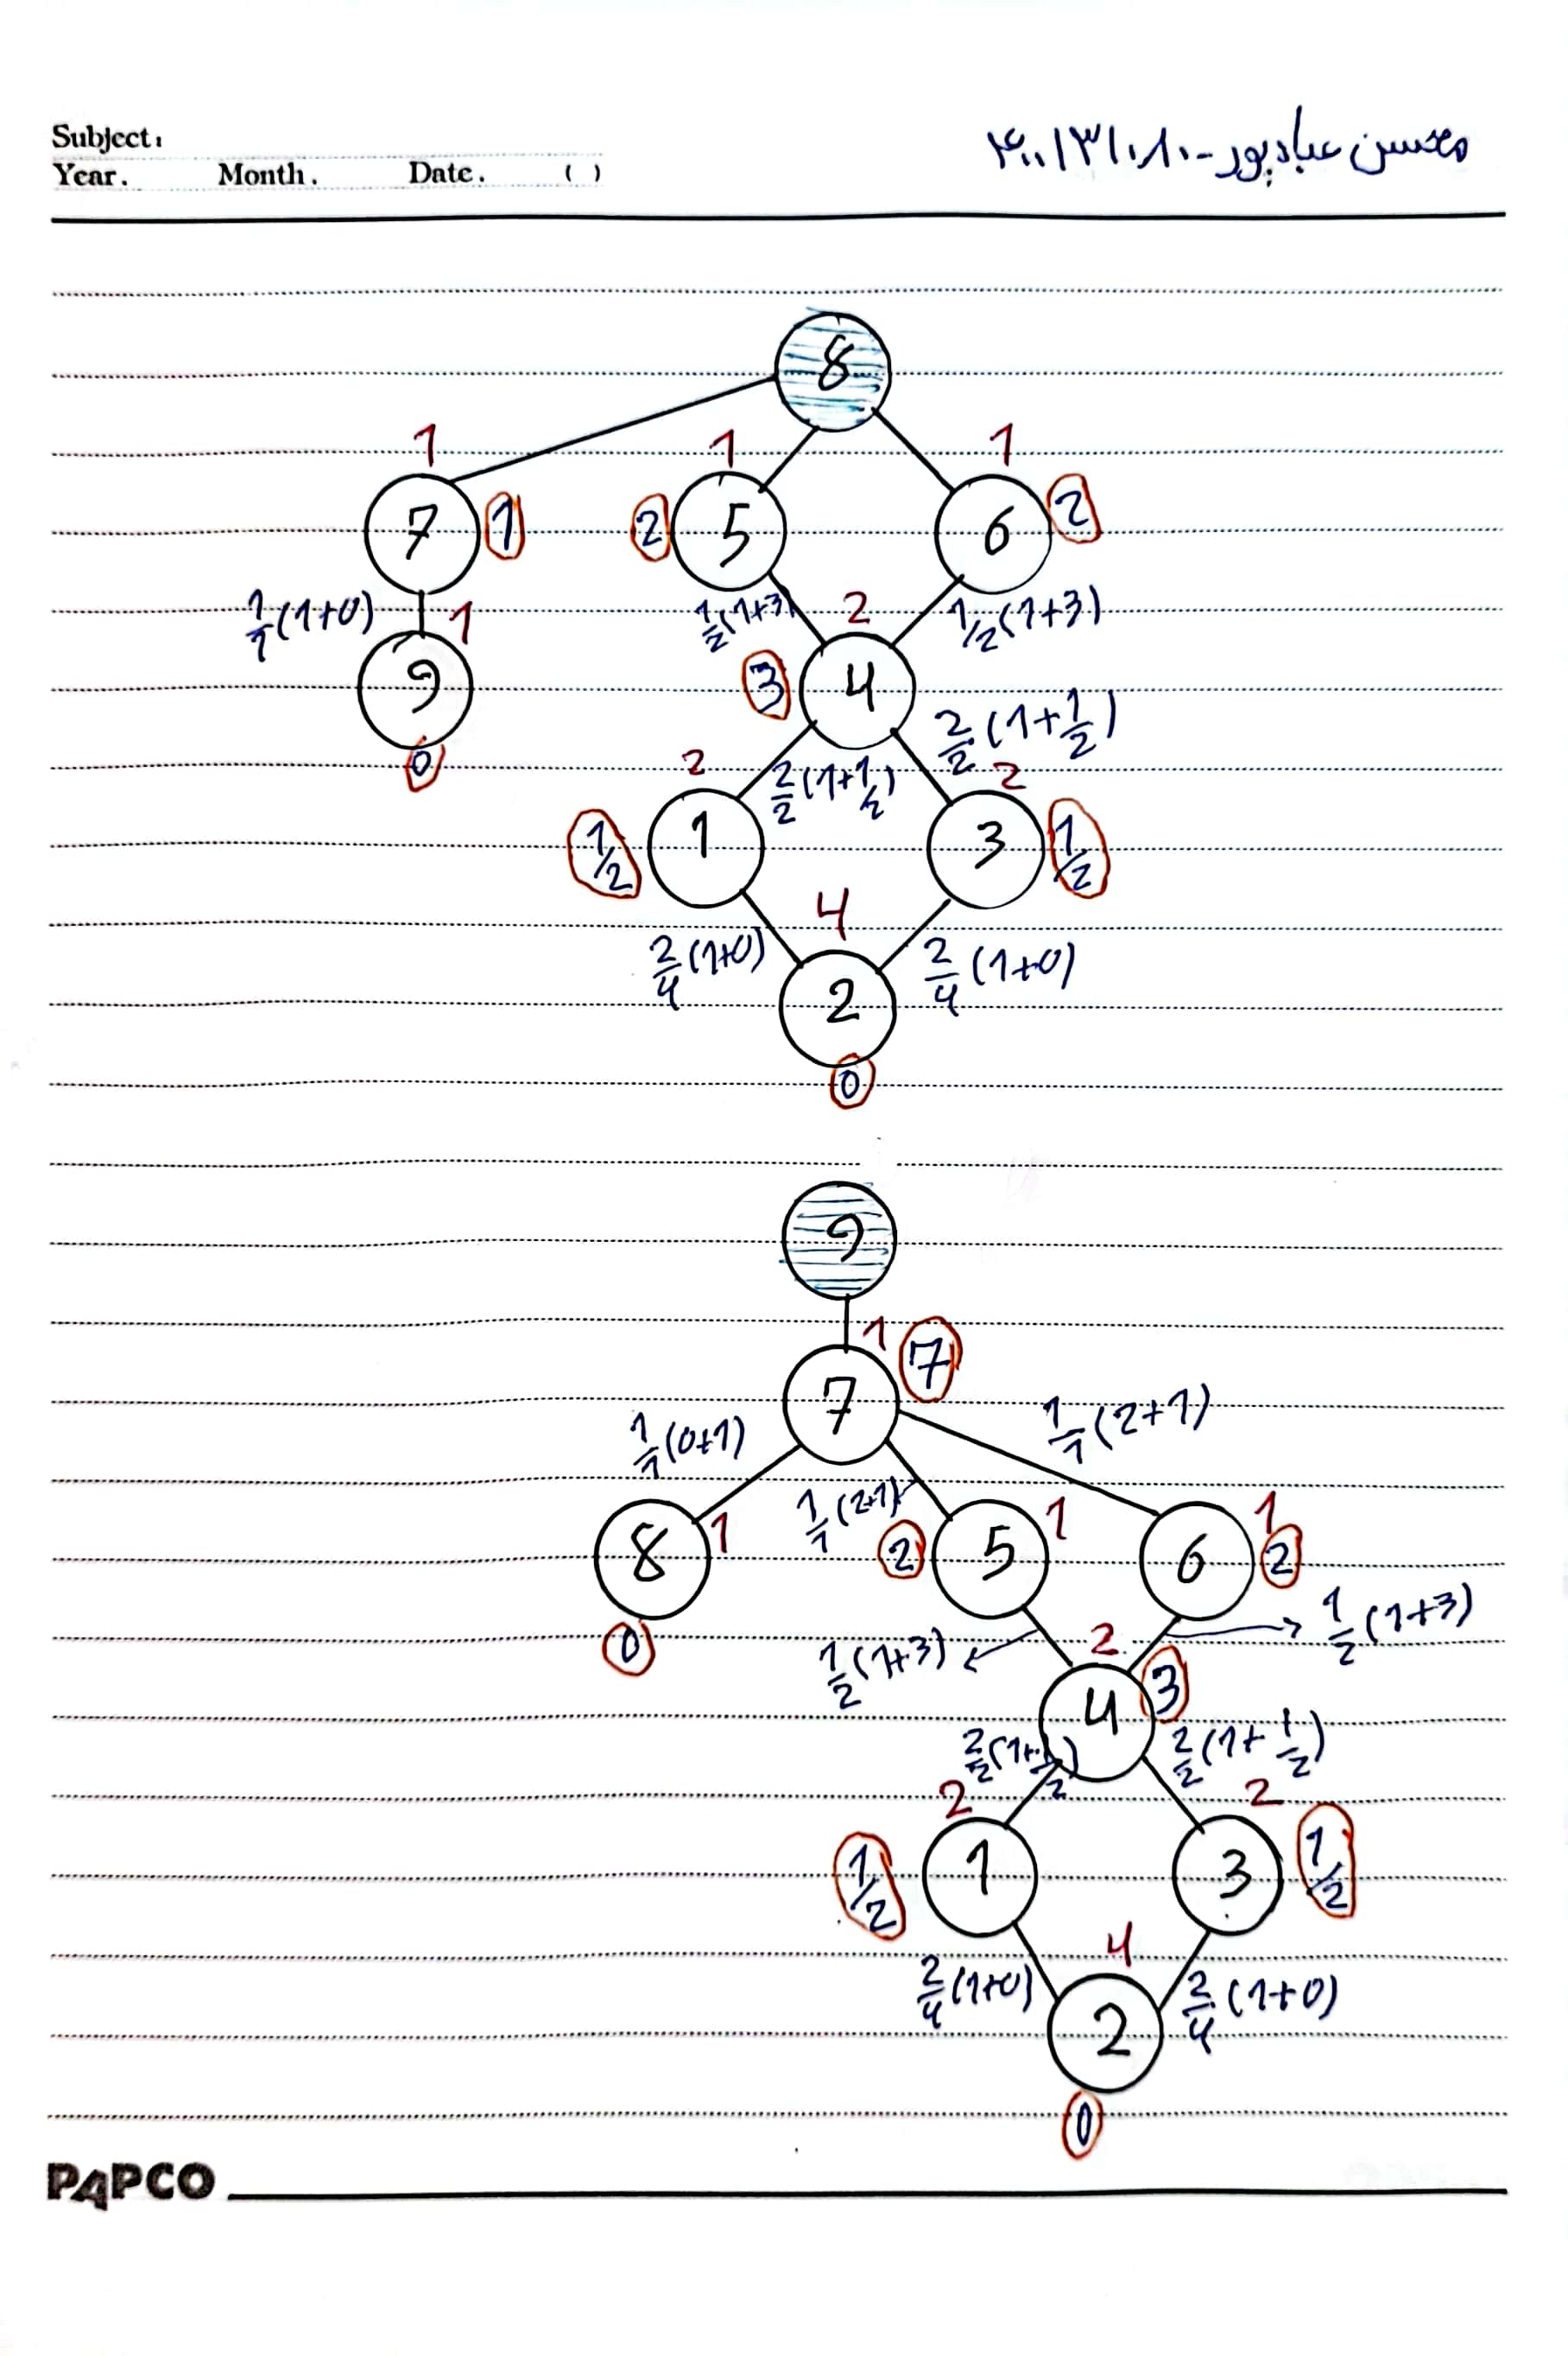 Subject:
محسن عبادپور - ۴۰۰۱۳۱۰۸۰
Year. Month. Date. ( )
8
1 1 1
7 1 2 5 6 2
1/1(1+0) 1 1/2(1+3) 2 1/2(1+3)
9 3 4
0 2/2(1+1/2)
2 2/2(1+1/2) 2
1/2 1 3 1/2
4
2/4(1+0) 2/4(1+0)
2
0
9
1 7
7
1/1(0+1) 1/1(2+1)
1/1(2+1)
8 1 2 5 1 6 1 2
0 1/2(1+3) 2 1/2(1+3)
4 3
2/2(1+1/2) 2/2(1+1/2)
2 2
1/2 1 3 1/2
4
2/4(1+0) 2/4(1+0)
2
0
PAPCO